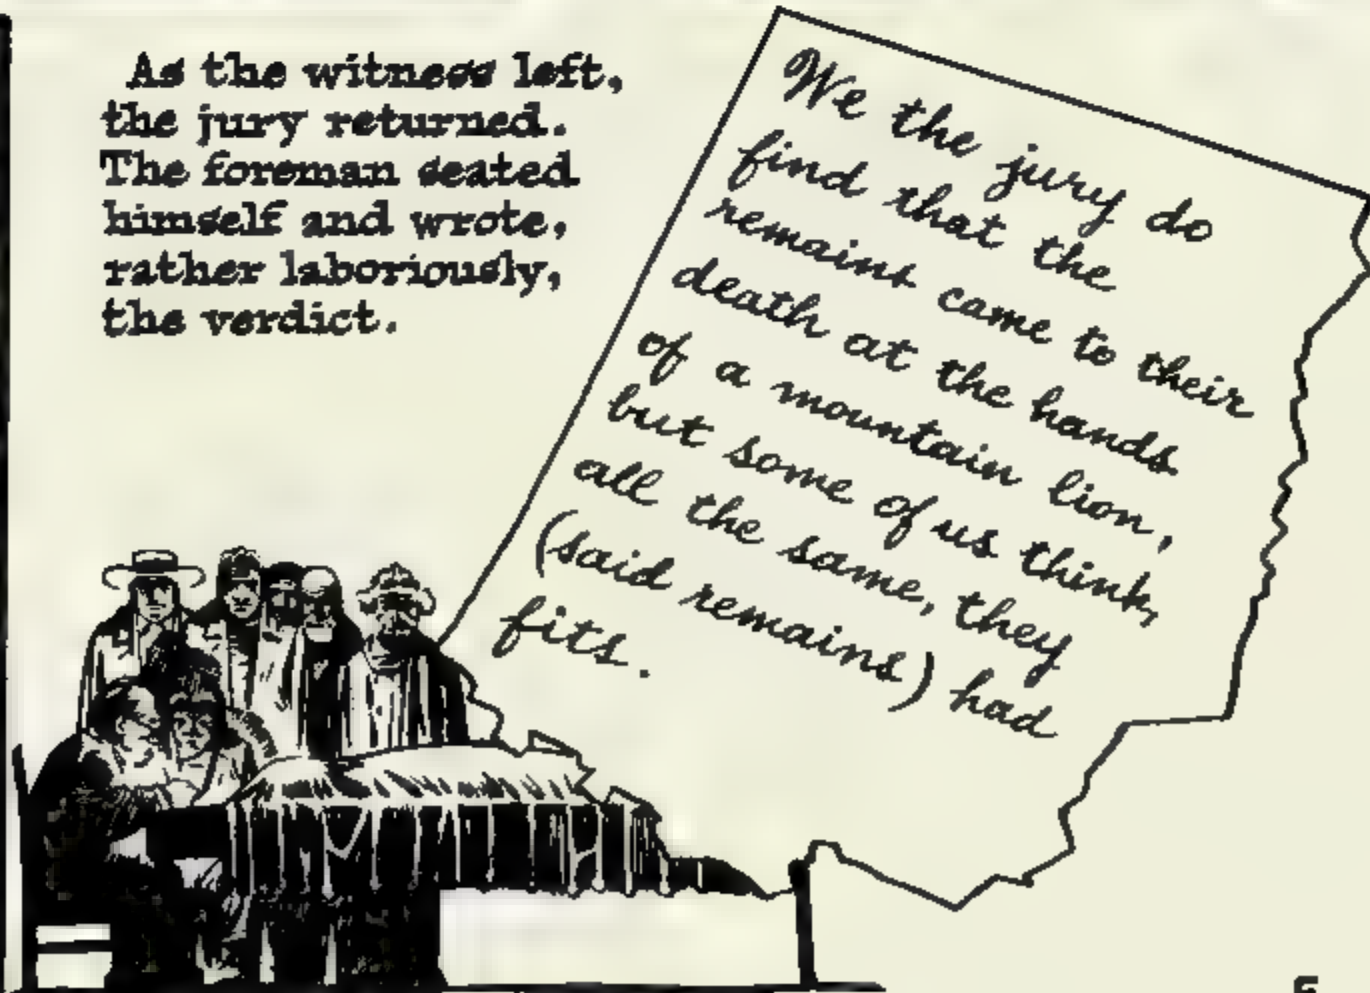 As the witness left,
the jury returned.
The foreman seated
himself and wrote,
rather laboriously,
the verdict.
We the jury do
find that the
remains came to their
death at the hands
of a mountain lion,
but some of us think,
all the same, they
(said remains) had
fits.